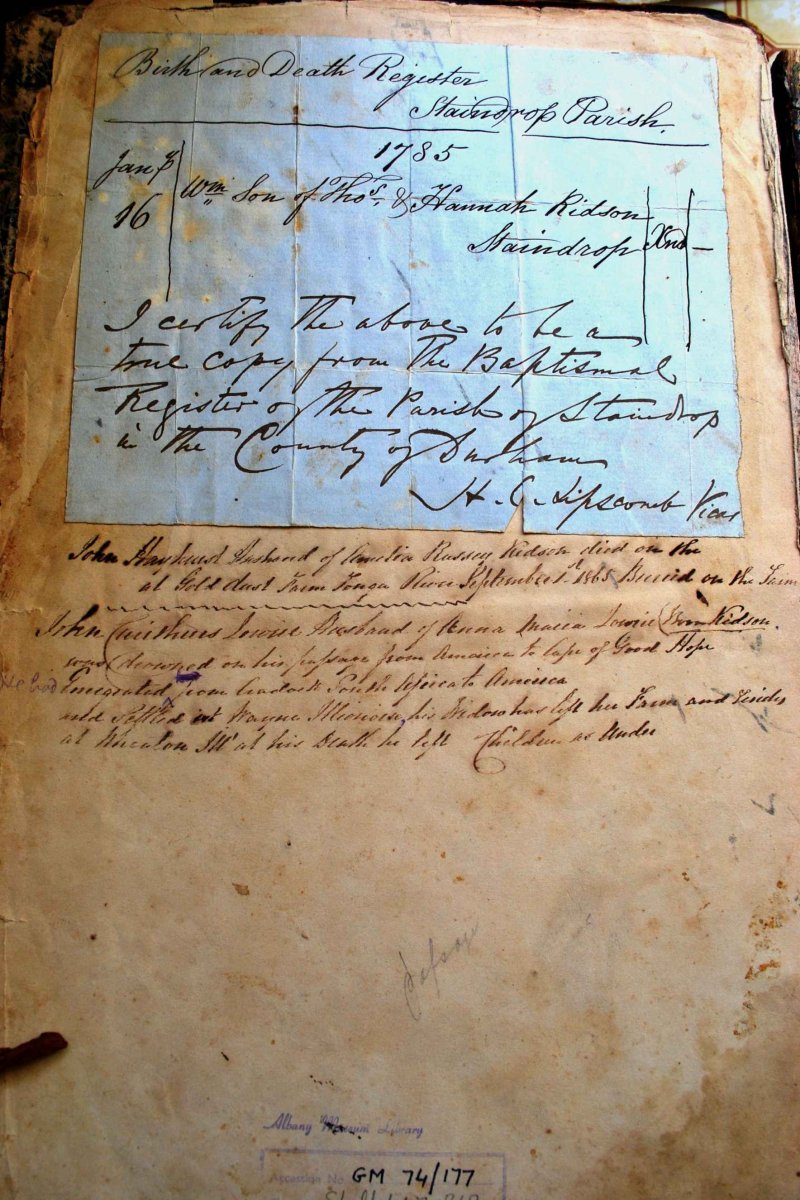 Birth and Death Register
Staindrop Parish.
1785
Jany
16
Wm Son of Thos. & Hannah Kidson
Staindrop
Xnd —
I certify the above to be a
true copy from the Baptismal
Register of the Parish of Staindrop
in the County of Durham
H. C. Lipscomb Vicar
John Hayhurst Husband of Amelia Russey Kidson died on the
at Gold dust Farm Tonga River September 1st 1865 Buried on the Farm
John Lowrie Husband of Anna Maria Lowrie Born Kidson.
was drowned on his passage from America to Cape of Good Hope
He had
Emegrated from Cradock South Africa to America
and Settled in Wayne Illinois, his Widow has left her Farm and resides
at Wheaton Ill at his Death he left Children as Under
Albany Museum Library
Accession No. GM 74/177